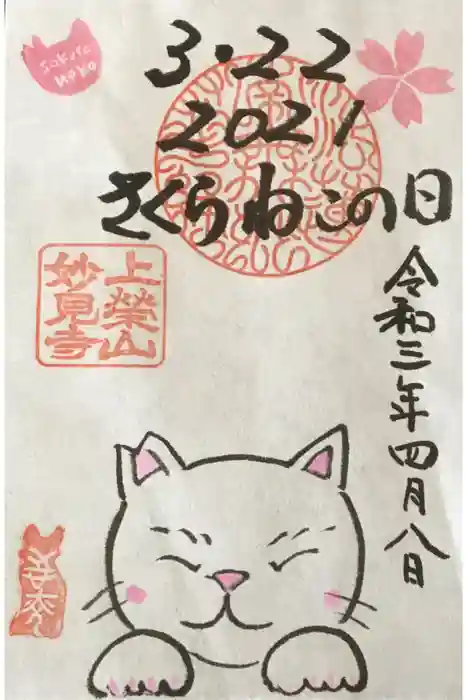 sakura
neko
3・22
2021
さくらねこの日
上榮山
妙見寺
令和三年四月八日